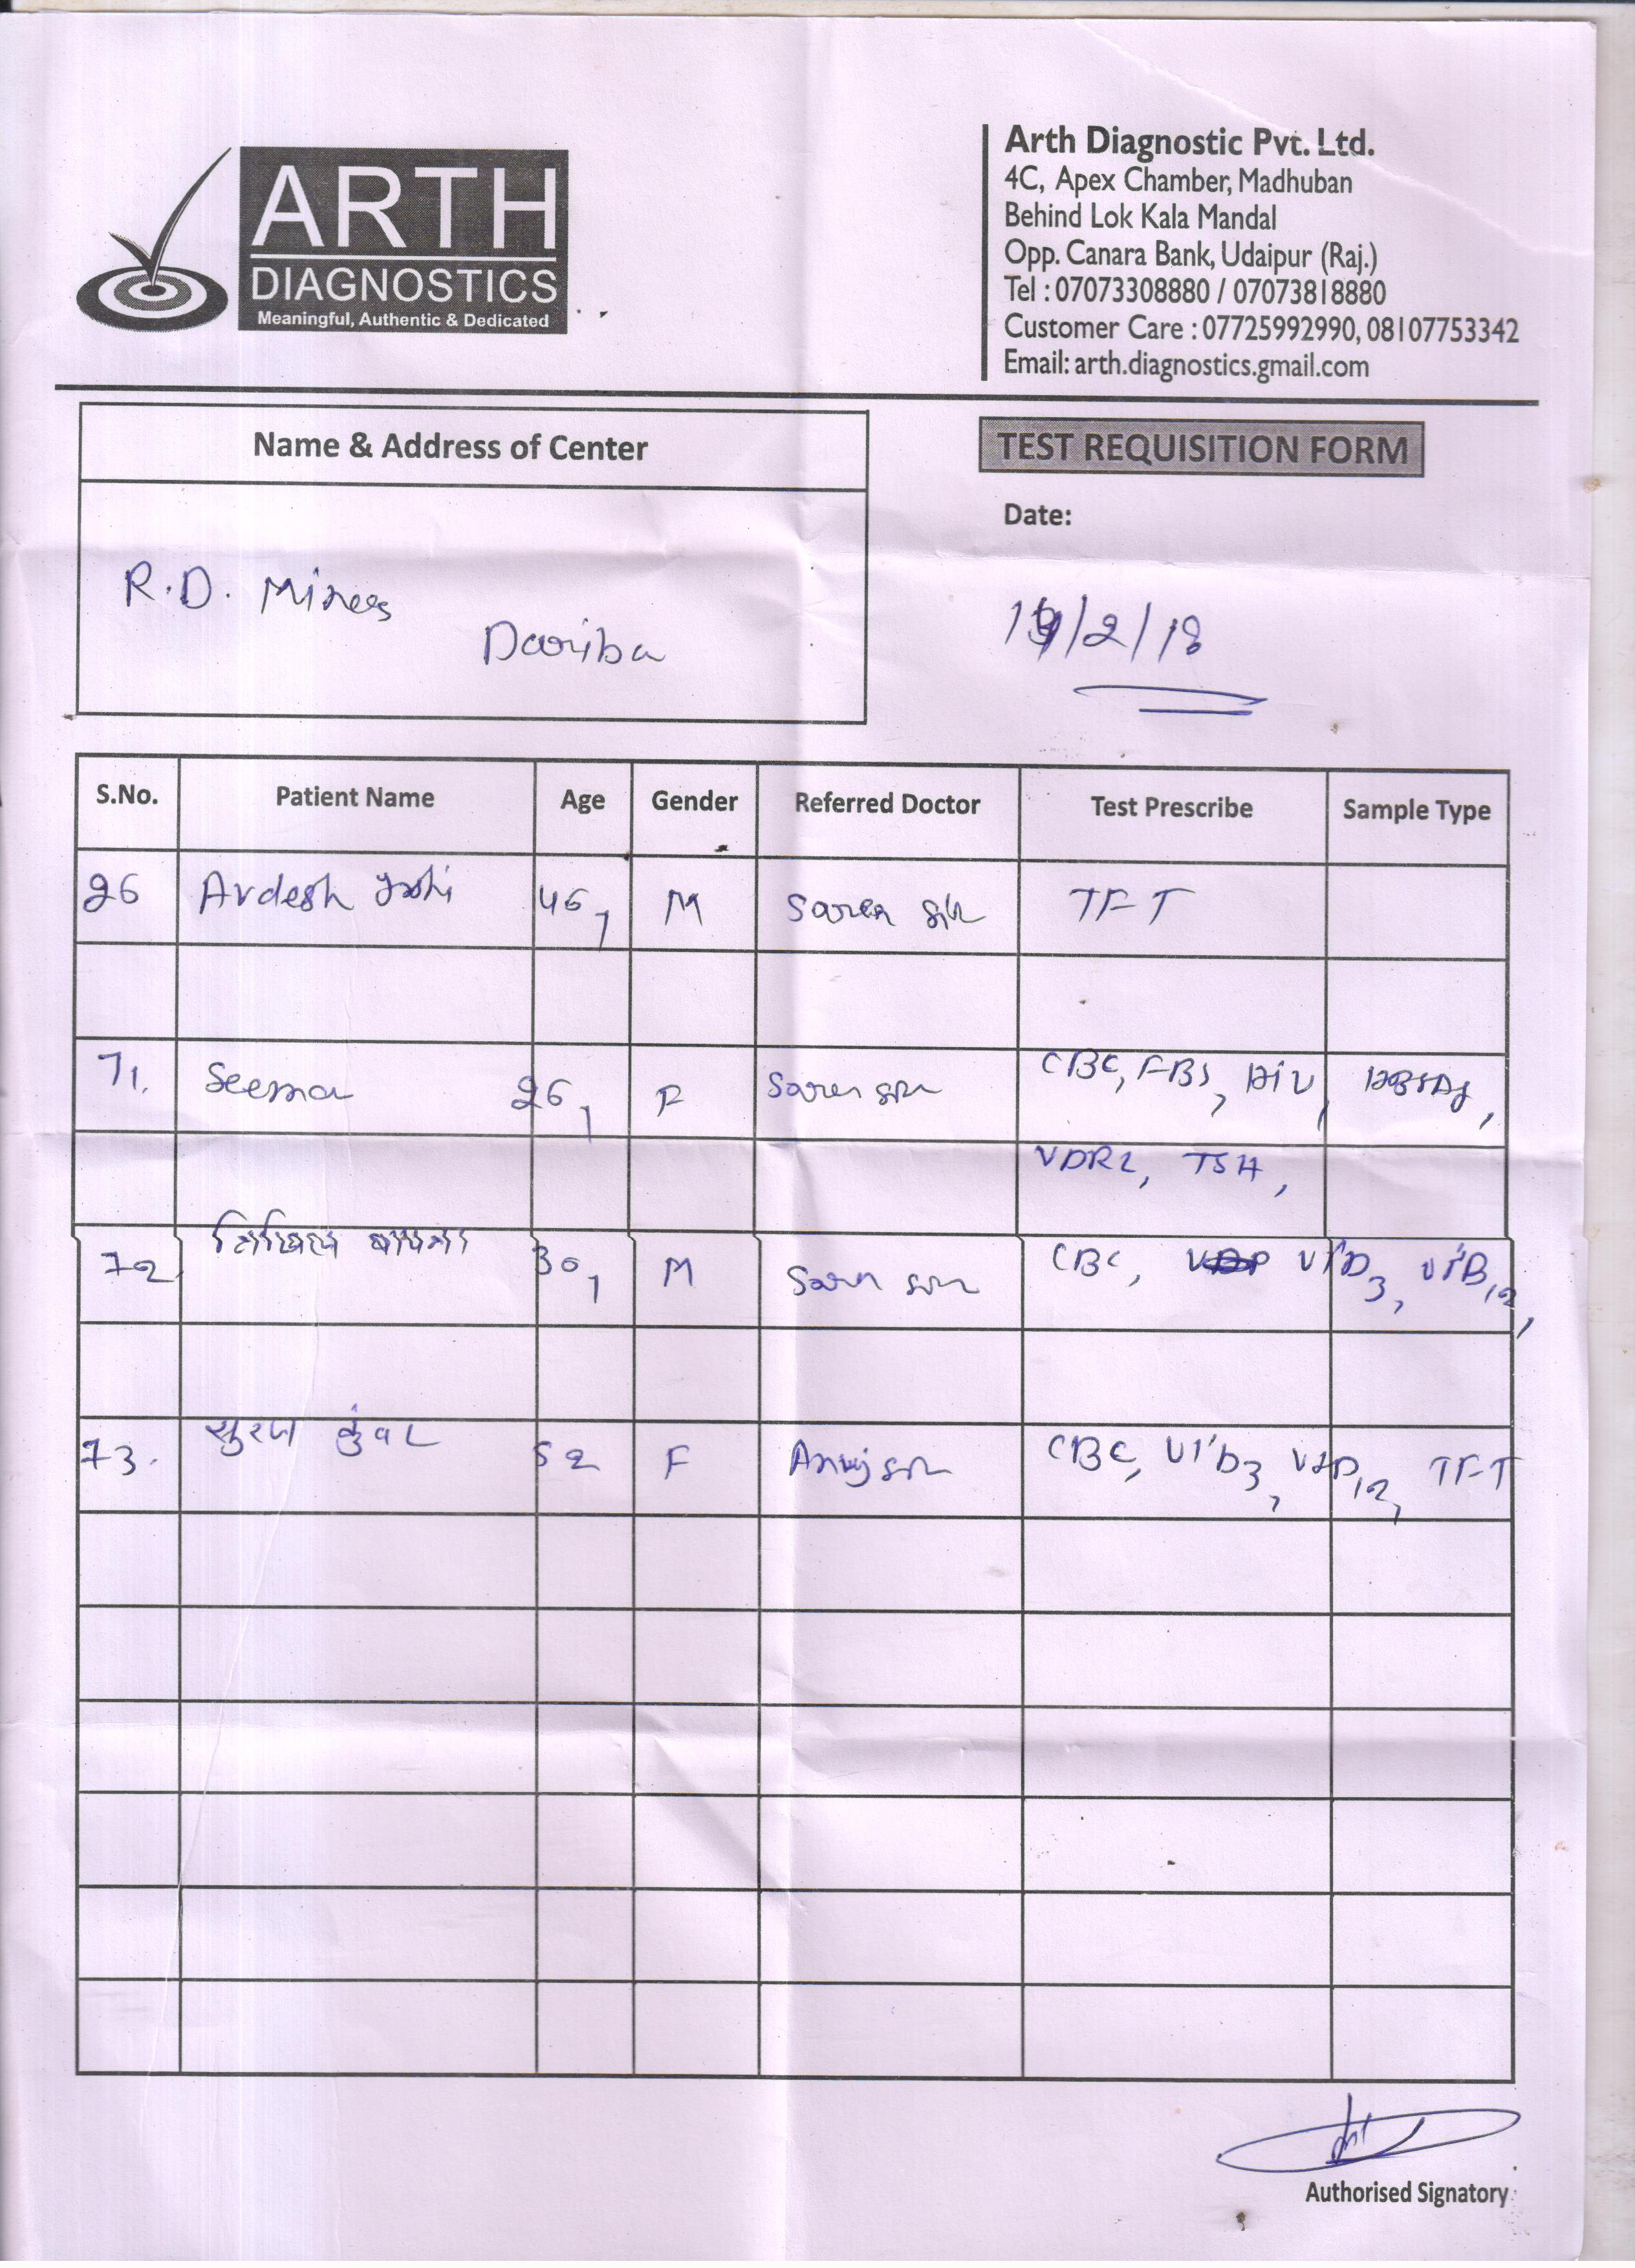 ARTH
DIAGNOSTICS
Meaningful, Authentic & Dedicated
Arth Diagnostic Pvt. Ltd.
4C, Apex Chamber, Madhuban
Behind Lok Kala Mandal
Opp. Canara Bank, Udaipur (Raj.)
Tel : 07073308880 / 07073818880
Customer Care : 07725992990, 08107753342
Email: arth.diagnostics.gmail.com
Name & Address of Center
TEST REQUISITION FORM
Date:
R.D. Mines
Dariba
/2/18
S.No. Patient Name Age Gender Referred Doctor Test Prescribe Sample Type
26 Avdesh Joshi 46, M TFT
71. Seema 26, F CBC, FBS, HIV, HBSAg,
VDRL, TSH,
72 निखिल बापना 30, M CBC, VitD3, VitB12,
73. कुंवर 52 F Anuj CBC, VitD3, 12, TFT
Authorised Signatory